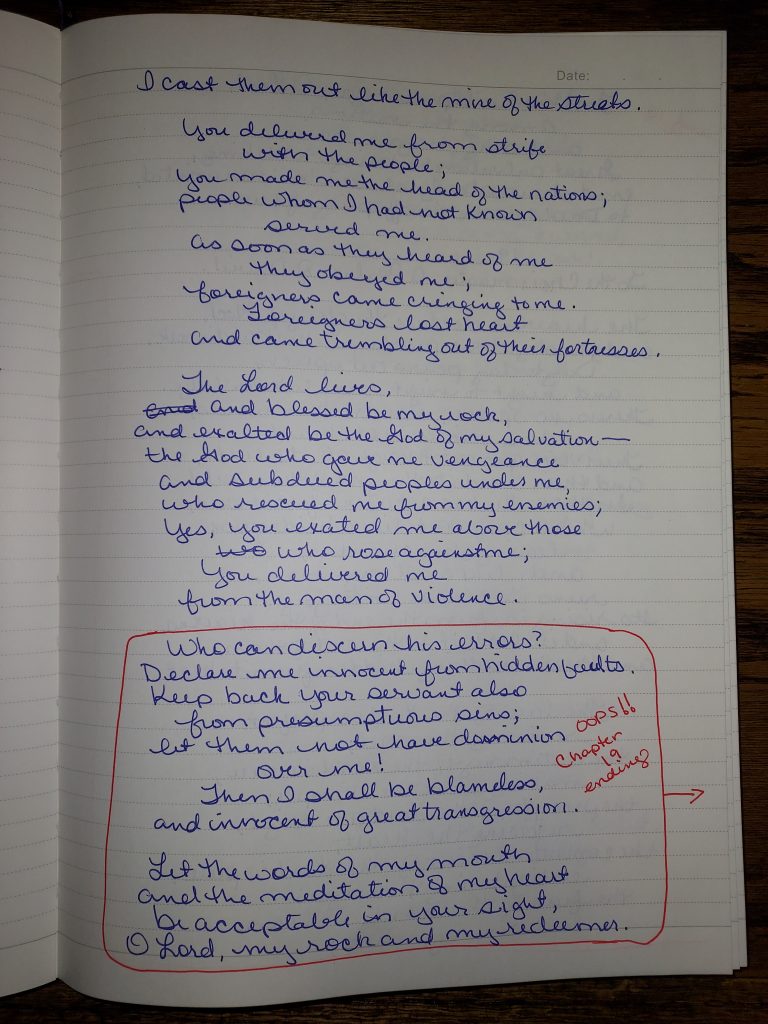 Date:
I cast them out like the mire of the streets.
You delivered me from strife
with the people;
You made me the head of the nations;
people whom I had not known
served me.
as soon as they heard of me
they obeyed me;
foreigners came cringing to me.
Foreigners lost heart
and came trembling out of their fortresses.
The Lord lives,
and and blessed be my rock,
and exalted be the God of my salvation—
the God who gave me vengeance
and subdued peoples under me,
who rescued me from my enemies;
Yes, you exated me above those
wo who rose against me;
You delivered me
from the man of violence.
Who can discern his errors?
Declare me innocent from hidden faults.
Keep back your servant also
from presumptuous sins;
let them not have dominion
over me!
Then I shall be blameless,
and innocent of great transgression.
OOPS!!
Chapter
19
ending
Let the words of my mouth
and the meditation of my heart
be acceptable in your sight,
O Lord, my rock and my redeemer.